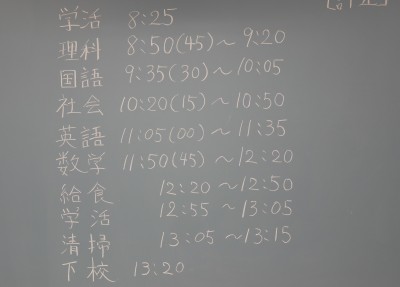 学活 8:25
理科 8:50(45)～9:20
国語 9:35(30)～10:05
社会 10:20(15)～10:50
英語 11:05(00)～11:35
数学 11:50(45)～12:20
給食 12:20～12:50
学活 12:55～13:05
清掃 13:05～13:15
下校 13:20